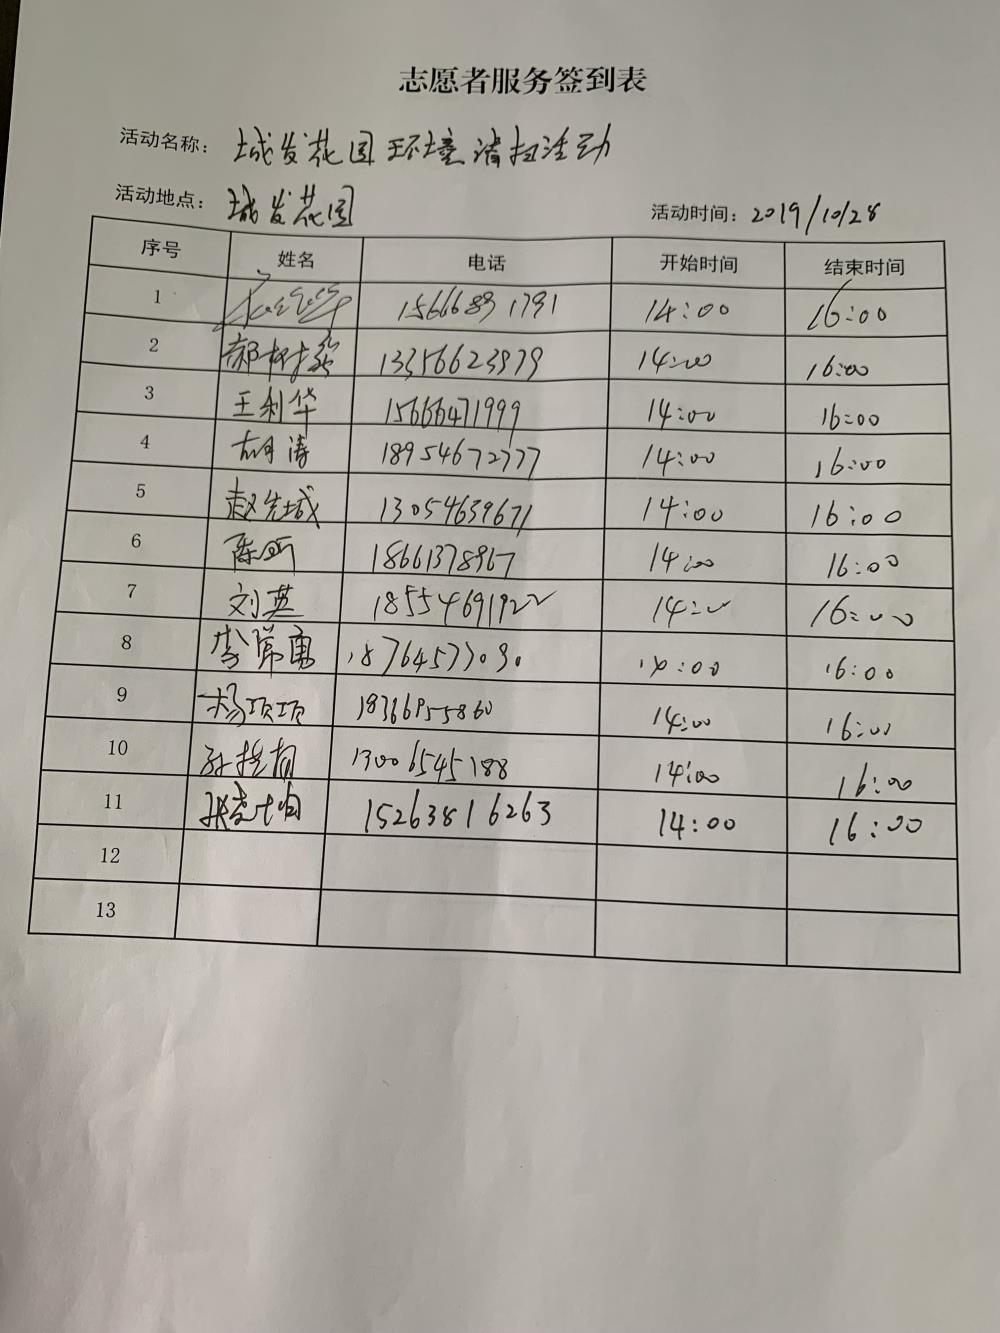 志愿者服务签到表
活动名称: 城发花园环境清扫活动
活动地点: 城发花园 活动时间: 2019/10/28
序号 姓名 电话 开始时间 结束时间
1 15666891791 14:00 16:00
2 郝树 13356623979 14:00 16:00
3 王利华 15666471999 14:00 16:00
4 胡涛 18954672777 14:00 16:00
5 赵先城 13054639671 14:00 16:00
6 陈 18661378967 14:00 16:00
7 刘英 18554691922 14:00 16:00
8 李常勇 18764577090 14:00 16:00
9 杨项项 18366955860 14:00 16:00
10 孙 13006545188 14:00 16:00
11 张 15263816263 14:00 16:00
12
13